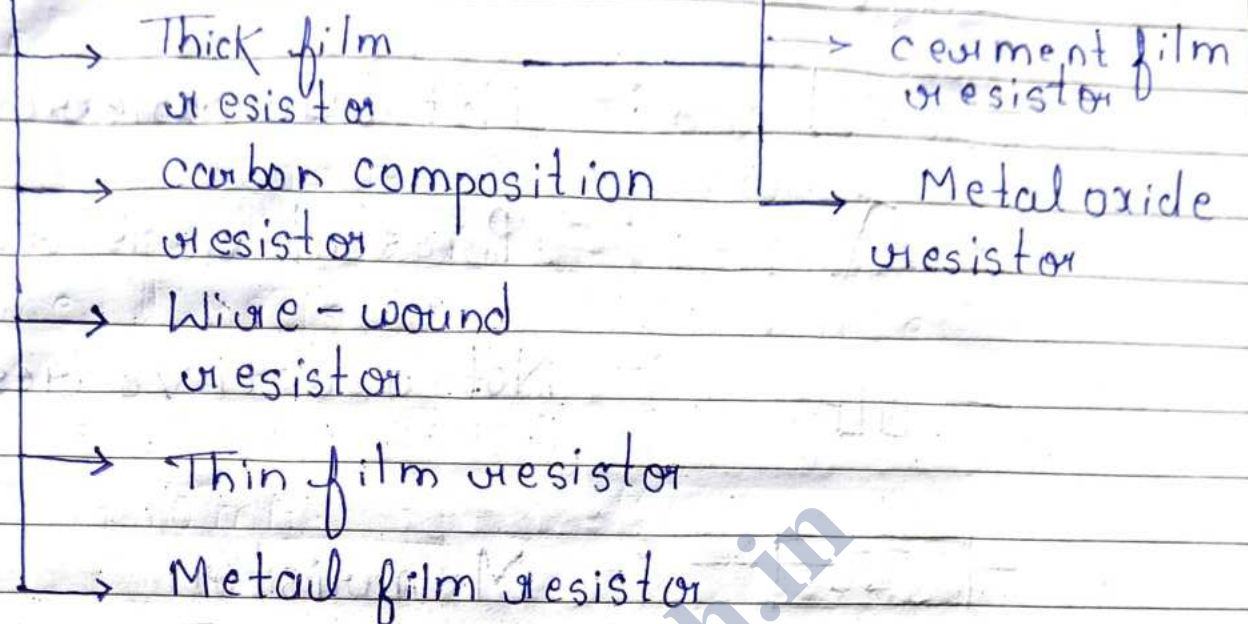 Thick film
resistor
carbon composition
resistor
Wire-wound
resistor
Thin film resistor
Metal film resistor
cerment film
resistor
Metal oxide
resistor